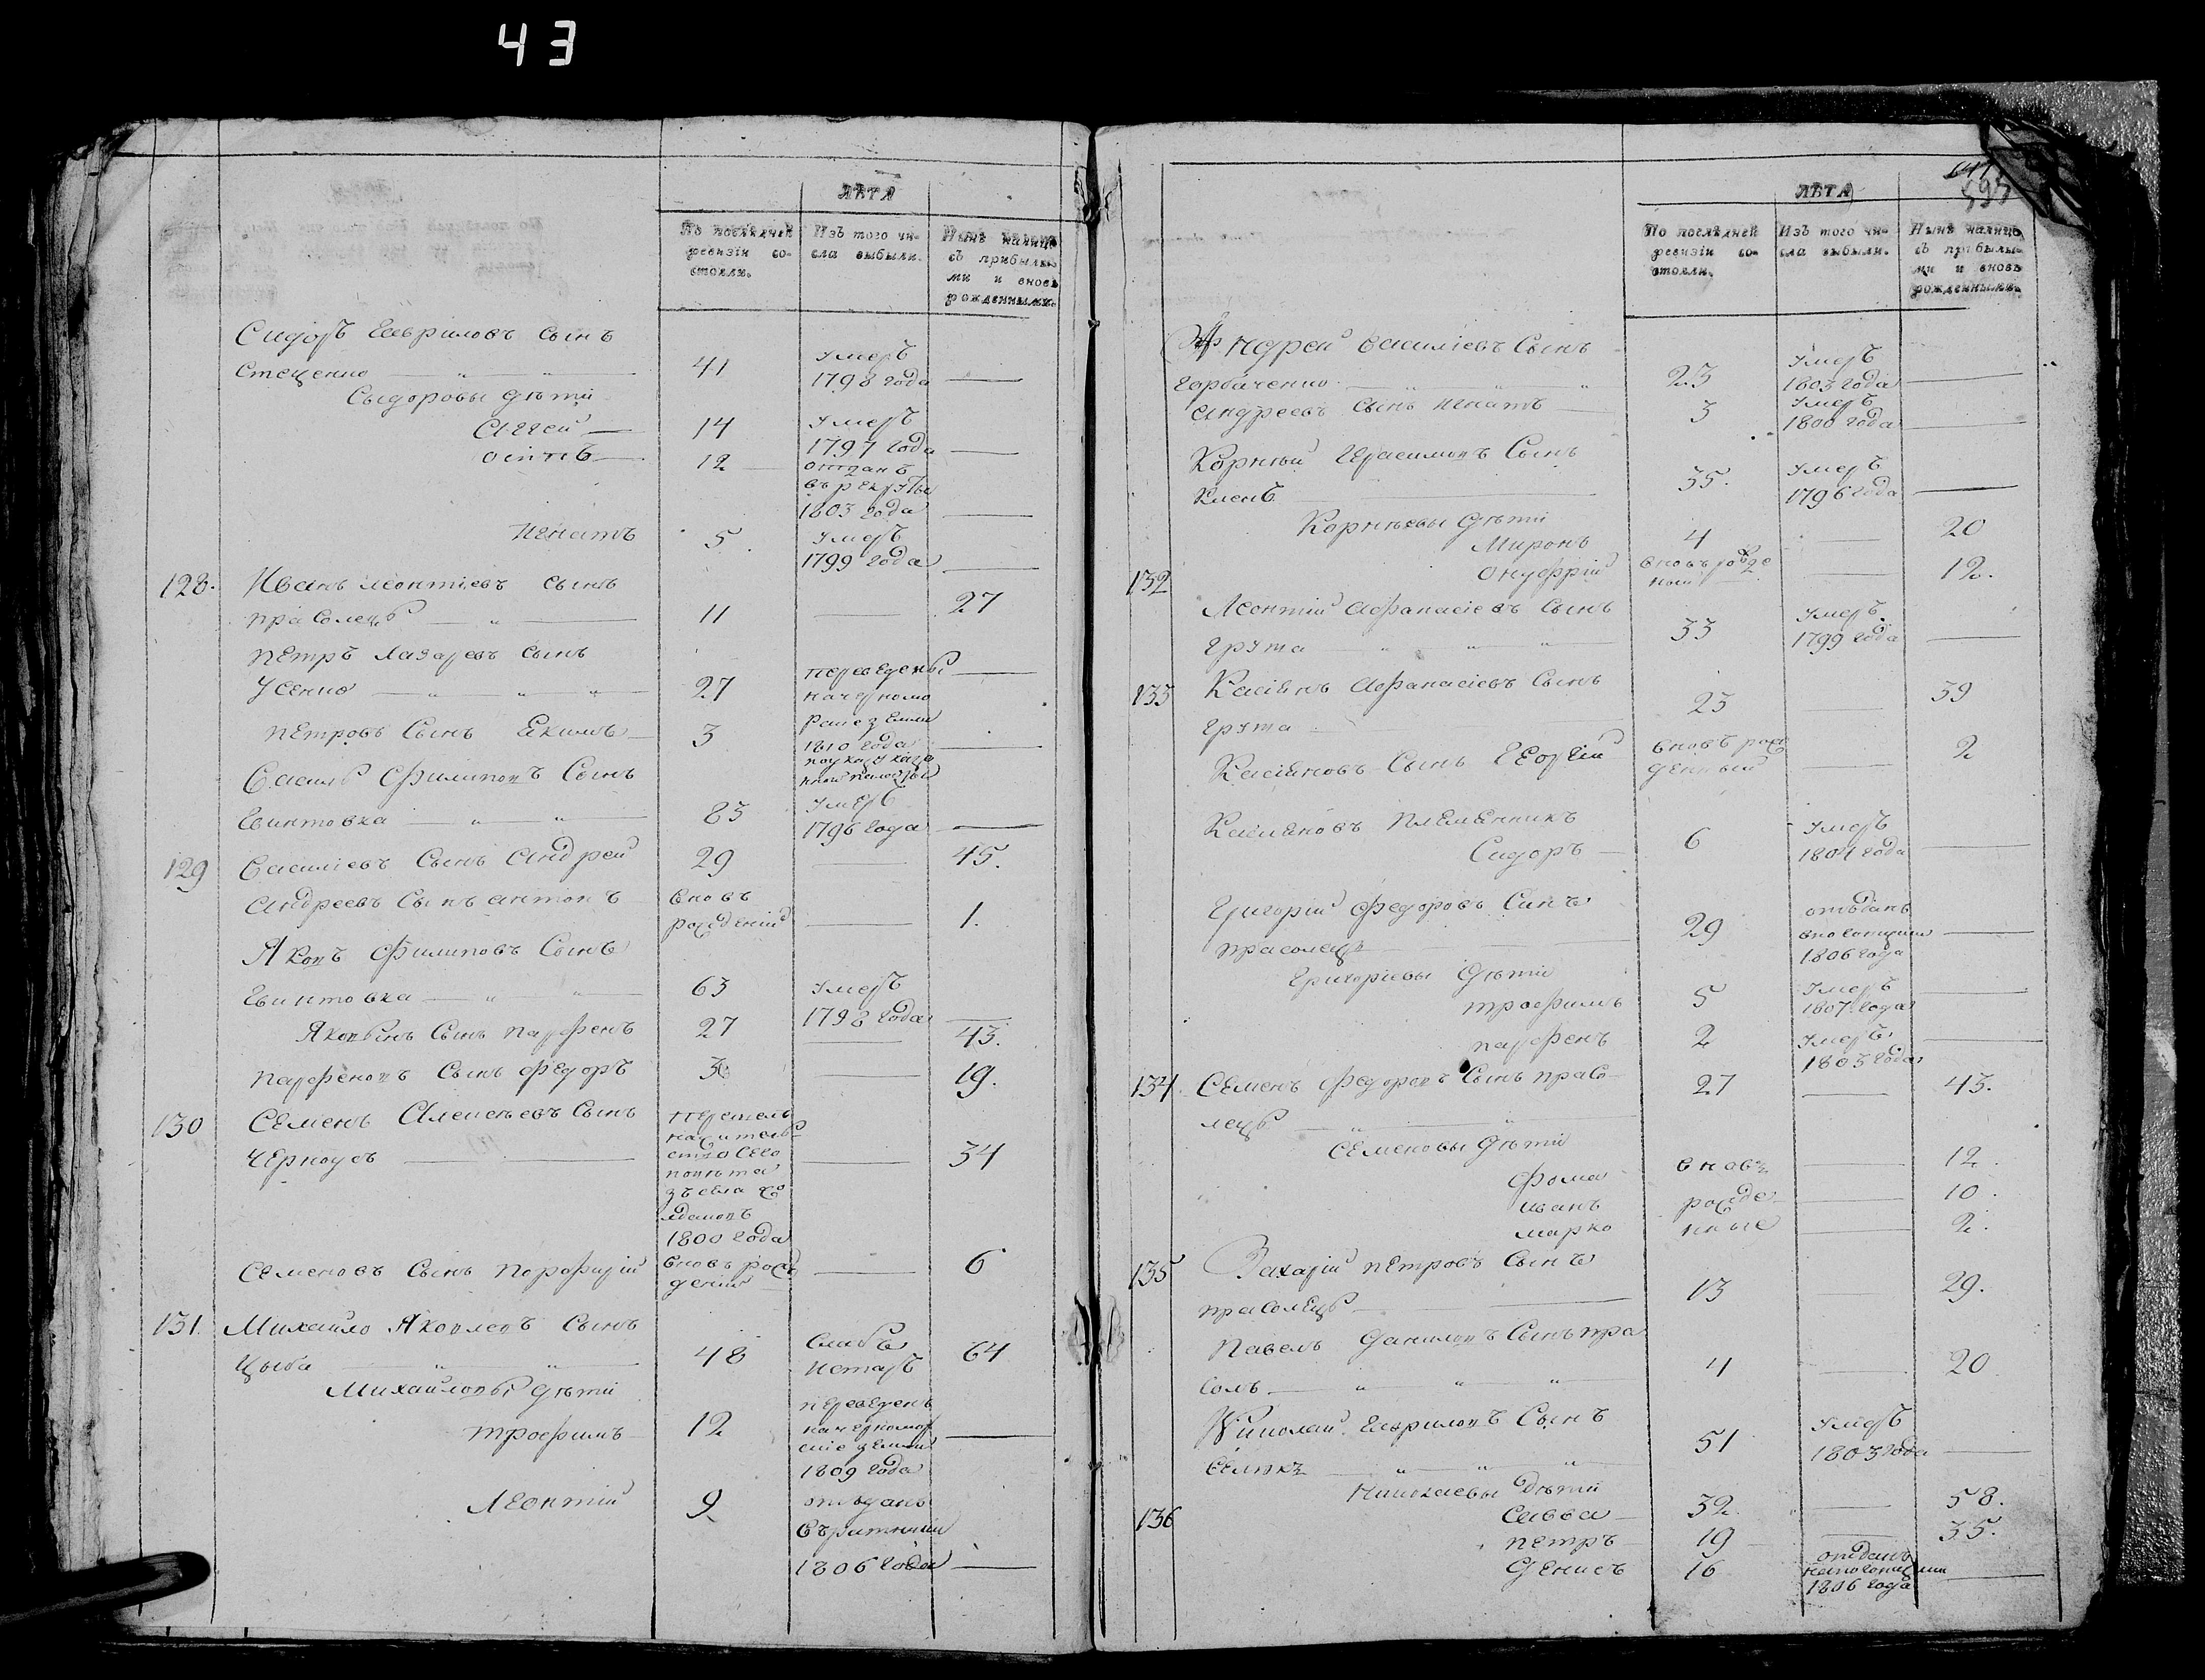 43
ЛѢТА
По послѣдней ревизіи состояли.
Изъ того числа выбыли.
Нынѣ налицо съ прибылыми и вновь рожденными.
Сидоръ Гавриловъ сынъ
Стеценко 41 умеръ 1798 года
Сыдоровы дѣти
Аггей 14 умеръ 1797 года
Осипъ 12 отданъ въ рекруты 1803 года
Игнатъ 5 умеръ 1799 года
128. Иванъ Леонтіевъ сынъ
прасолецъ 11 27
Петръ Лазаревъ сынъ
Усенко 27 переведены
Петровъ Сынъ Екимъ 3 1810 года
Василь Филиповъ Сынъ
Гвинтовка 83 умеръ 1796 года
129 Василіевъ Сынъ Андрей 29 45.
Андреевъ Сынъ Антонъ вновь рожденій 1.
Яковъ Филиповъ Сынъ
Гвинтовка 63 умеръ 1798 года
Яковвинъ Сынъ Парфенъ 27 43.
Парфеновъ Сынъ Федоръ 3 19.
130 Семенъ Алексѣевъ Сынъ
Черноусъ 1800 года 34
Семеновъ Сынъ Порофирій вновь рожденій 6
131. Михайло Яковлевъ Сынъ
Цыба 48 слабъ и старъ 64
Михайловы дѣти
трофимъ 12 переведенъ на черноморскіе земли 1809 года
Леонтій 9 отъданъ въ ратники 1806 года
ЛѢТА
595
По послѣдней ревизіи состояли.
Изъ того числа выбыли.
Нынѣ налицо съ прибылыми и вновь рожденными.
Андрей Василіевъ Сынъ
Горбаченко 23 умеръ 1803 года
Андреевъ Сынъ Игнатъ 3 умеръ 1800 года
Корнѣй Герасимовъ Сынъ
Кленъ 35. умеръ 1796 года
Корнѣевы дѣти
Миронъ 4 20
132 Онуфрій вновь рожденой 12.
Леонтій Афанасіевъ Сынъ
Грута 33 умеръ 1799 года
133 Касіянъ Афанасіевъ Сынъ
Грута 23 39
Касіяновъ Сынъ Георгій вновь рожденный 2
Касіяновъ племенникъ
Сидоръ 6 умеръ 1804 года
Григорій Федоровъ Синъ
прасолецъ 29 отъданъ 1806 года
Григоріевы дѣти
трофимъ 5 умеръ 1807 года
парфенъ 2 умеръ 1803 года
134 Семенъ Федоровъ Сынъ прасо-
лецъ 27 43.
Семеновы дѣти
Фома вновь 12.
иванъ рожде- 10.
марко нные 2.
135 Захарій Петровъ Сынъ
прасолецъ 13 29.
Павелъ Даниловъ Сынъ пра
солъ 4 20
Николай Гавриловъ Сынъ
51 умеръ 1803 года
Николаевы дѣти
136 Савва 32. 58.
Петръ 19 35.
Денисъ 16 отданъ 1806 года